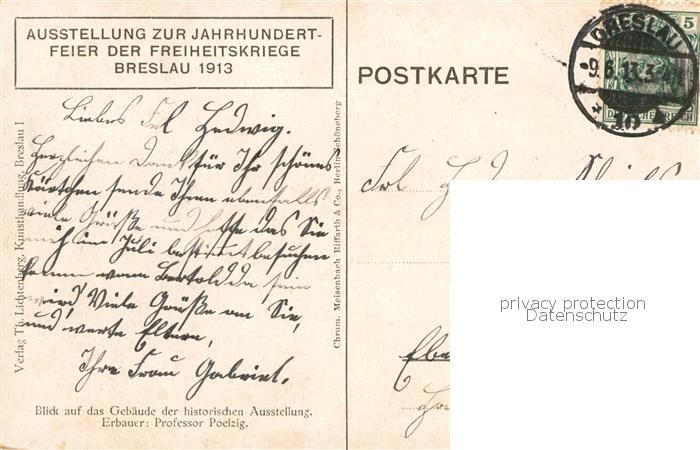 AUSSTELLUNG ZUR JAHRHUNDERT-
FEIER DER FREIHEITSKRIEGE
BRESLAU 1913
POSTKARTE
BRESLAU
-9.6.13.3-
* 10
5
DEUTSCHES REICH
Liebes Frl Hedwig.
Herzlichen Dank für Ihr schönes
Kärtchen sende Ihnen ebenfalls
viele Grüße und hoffe das Sie
mich im Juli bestimt besuchen
kommen wann Bertold da sein
wird, Viele Grüße an Sie,
und werte Eltern,
Ihre Frau Gabriel.
Frl
Verlag Th. Lichtenberg, Kunsthandlung, Breslau I
Chrom. Meisenbach Riffarth & Co., Berlin-Schöneberg
Blick auf das Gebäude der historischen Ausstellung.
Erbauer: Professor Poelzig.
privacy protection
Datenschutz